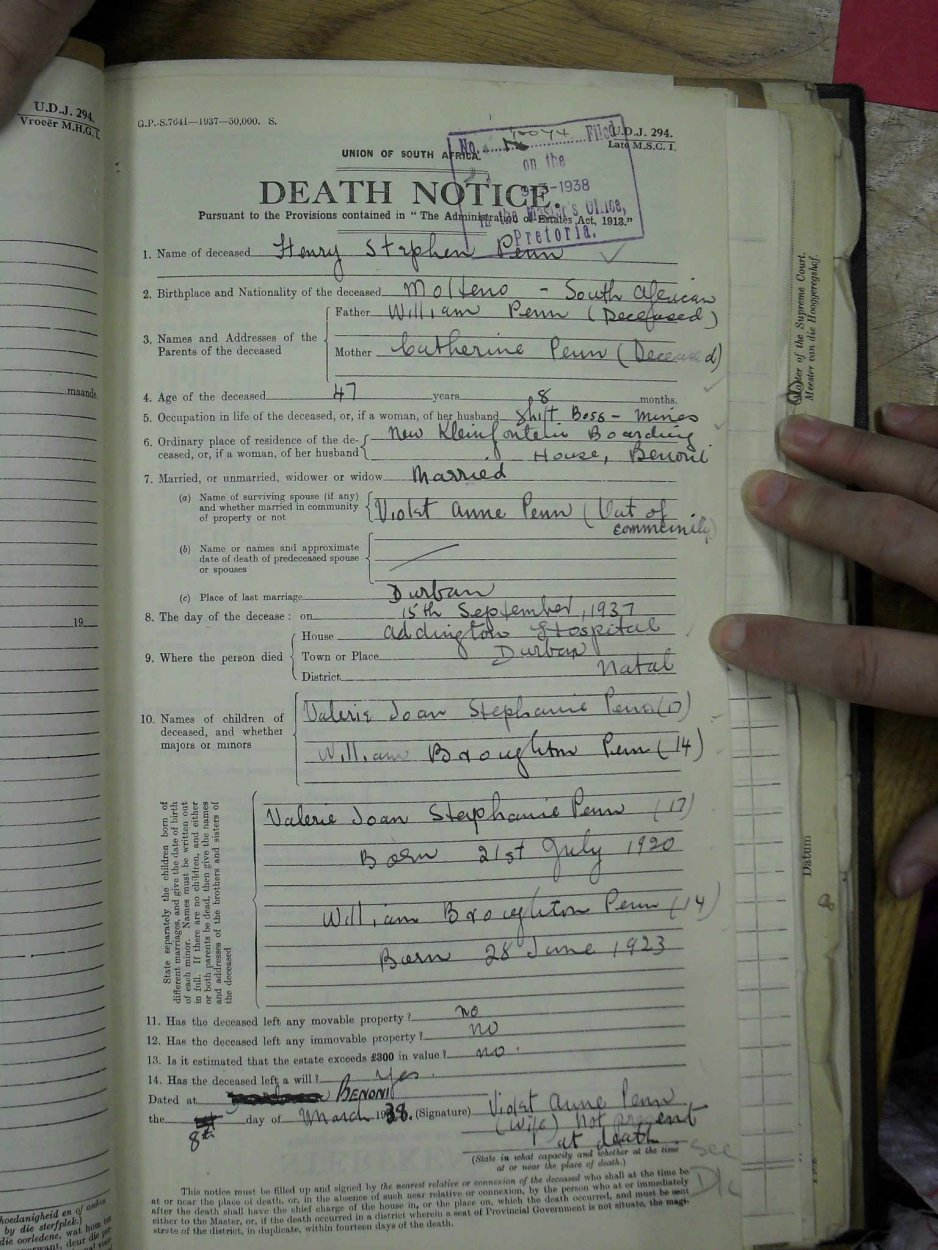 U.D.J. 294.
Vroeër M.H.G. 1.
maande.
19
G.P.-S.7641—1937—50,000. S.
No. Filed
on the
-1938
in the Master's Office,
Pretoria.
U.D.J. 294.
Late M.S.C. 1.
UNION OF SOUTH AFRICA.
DEATH NOTICE.
Pursuant to the Provisions contained in "The Administration of Estates Act, 1913."
1. Name of deceased Henry Stephen Penn
2. Birthplace and Nationality of the deceased Molteno - South African
3. Names and Addresses of the Parents of the deceased
Father William Penn (Deceased)
Mother Catherine Penn (Deceased)
4. Age of the deceased 47 years 8 months.
5. Occupation in life of the deceased, or, if a woman, of her husband Shift Boss - Mines
6. Ordinary place of residence of the de- New Kleinfontein Boarding
ceased, or, if a woman, of her husband House, Benoni
7. Married, or unmarried, widower or widow Married
(a) Name of surviving spouse (if any)
and whether married in community
of property or not
Violet Anne Penn (Out of
community)
(b) Name or names and approximate
date of death of predeceased spouse
or spouses
(c) Place of last marriage Durban
8. The day of the decease: on 15th September, 1937
9. Where the person died
House Addington Hospital
Town or Place Durban
District Natal
10. Names of children of
deceased, and whether
majors or minors
Valerie Joan Stephanie Penn (17)
William Broughton Penn (14)
State separately the children born of
different marriages, and give the date of birth
of each minor. Names must be written out
in full. If there are no children, and either
or both parents be dead, then give the names
and addresses of the brothers and sisters of
the deceased
Valerie Joan Stephanie Penn (17)
Born 21st July 1920
William Broughton Penn (14)
Born 28 June 1923
11. Has the deceased left any movable property? no
12. Has the deceased left any immovable property? no
13. Is it estimated that the estate exceeds £300 in value? no.
14. Has the deceased left a will? Yes.
Dated at BENONI
the 8th day of March 1938. (Signature) Violet Anne Penn
(wife) not present
at death
(State in what capacity and whether at the time
at or near the place of death.)
see
This notice must be filled up and signed by the nearest relative or connection of the deceased who shall at the time be
at or near the place of death, or, in the absence of such near relative or connection, by the person who at or immediately
after the death shall have the chief charge of the house in, or the place on, which the death occurred, and must be sent
either to the Master, or, if the death occurred in a district wherein a seat of Provincial Government is not situate, the magi-
strate of the district, in duplicate, within fourteen days of the death.
hoedanigheid en of
by die sterfplek.)
die oorledene, wat
Master of the Supreme Court.
Meester van die Hooggeregshof.
Datum